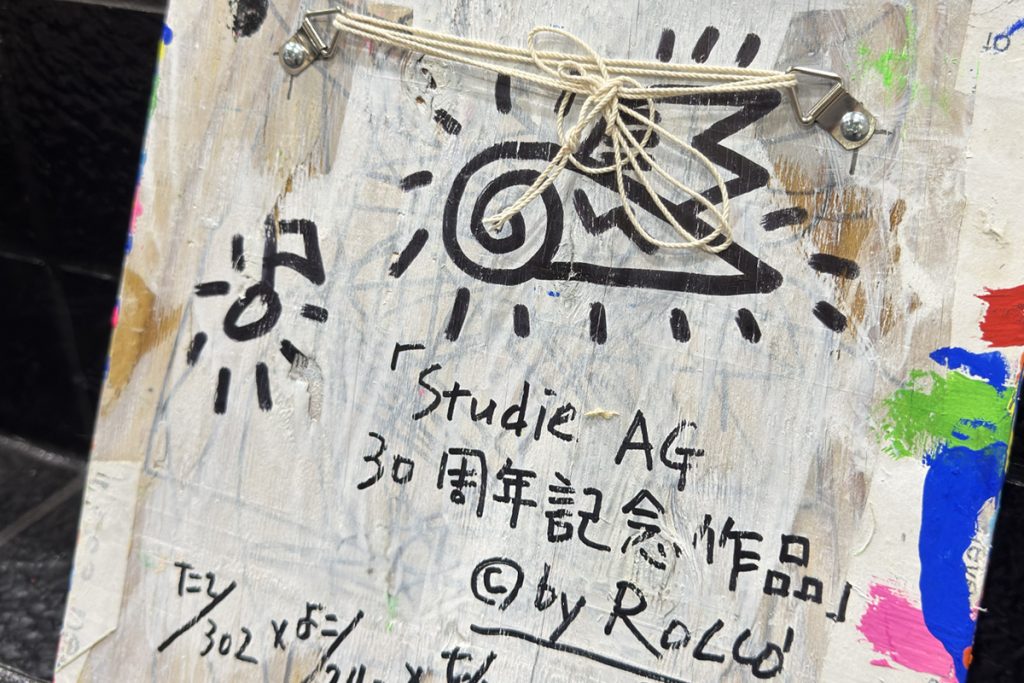 「Studie AG
30周年記念作品」
© by ROLLO
たて/302 × よこ/
10